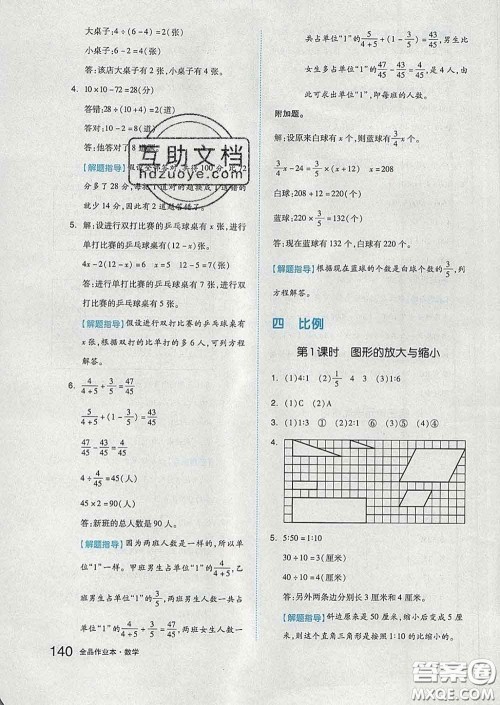 大桌子:4÷(6-4)=2(张)
小桌子:6-2=4(张)
答:该店大桌子有 2 张,小桌子有 4 张。
4. 10×10-72=28(分)
答错:28÷(10+4)=2(道)
答对:10-2=8(道)
答:他答对了 8
【解题指导】
5. 解:设进行双打比赛的乒乓球桌有 x 张,进行
单打比赛的乒乓球桌有(12-x)张。
4x-2(12-x)=6 x=5 12-5=7(张)
答:进行单打比赛的乒乓球桌有 7 张,进行双
打比赛的乒乓球桌有 5 张。
【解题指导】假设进行双打比赛的乒乓球桌有 x
张,根据双打的比单打的多 6 人,可列方程
解答。
6. 4/(4+5)+3/45=43/45
5/(4+5)+(1-3/45)=47/45
47/45-43/45=4/45
4÷4/45=45(人)
45×2=90(人)
答:新班的总人数是 90 人。
【解题指导】因为两班人数是一样的,所以单
位“1”一样。甲班男生占单位“1”的4/(4+5),乙
班男生占单位“1”的3/45,两班男生人数共占单
位“1”的4/(4+5)+3/45=43/45,两班女生人数一
140 全品作业本·数学
共占单位“1”的5/(4+5)+(1-3/45)=47/45,男生比
女生多占单位“1”的47/45-43/45=4/45,是 4 人,由
此可以求出单位“1”,即每班的人数。
附加题。
解:设原来白球有 x 个,则蓝球有3/4x个。
3/4x-24=3/5x x=160
白球:160+40=200(个)
蓝球:200×3/5=120(个)
答:现在白球有 200 个,蓝球有 120 个。
【解题指导】根据现在蓝球的个数是白球个数的3/5,列
方程解答。
四 比例
第1课时 图形的放大与缩小
1. (1)4:1 (2)1/5 4 (3)4 1:6
2. (1)C (2)A
3. (1)1:3 (2)① ⑥ (3)⑤ (4)④
4.
5. 5:50=1:10
30÷10=3(厘米)
40÷10=4(厘米)
答:另外两条边分别长 3 厘米、4 厘米。
【解题指导】斜边原来长 50 厘米,缩小后变成 5 厘
米,则这个直角三角形是按照 1:10 的比缩小的。
互助文档
hdzuoye.com
答案圈
MXQE.COM